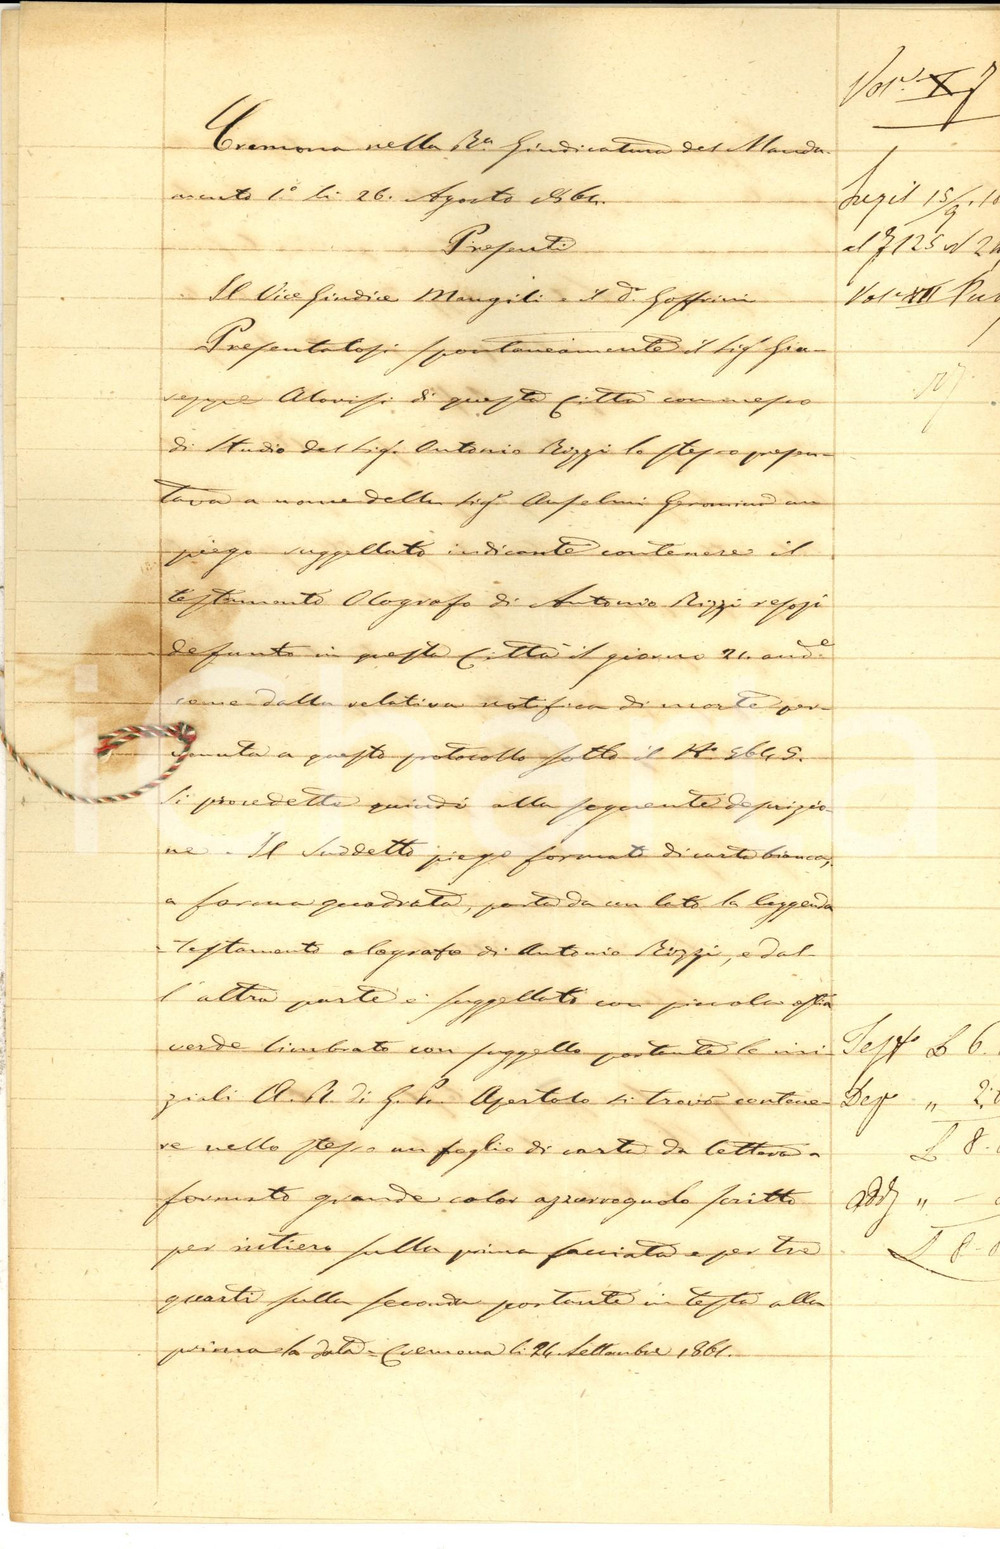 Cremona nella Ra. Giudicatura del Manda-
mento 1.° li 26. Agosto 1864.
Presenti
Il Vice Giudice Mangili - il D.
Presentatosi spontaneamente il Sigr. Giu-
seppe Alovisi di questa Città commesso
di Studio del Sigr. Antonio Rizzi lo stesso presen-
tava a nome della Sigra. Anselmi Geromina un
piego suggellato indicante contenere il
testamento Olografo di Antonio Rizzi resosi
defunto in questa Città il giorno 21. and.e
come dalla relativa notifica di morte per-
venuta a questo protocollo sotto il N.°
Si procedette quindi alla seguente descrizio-
ne - Il Suddetto piego formato di carta bianca,
a forma quadrata, porta da un lato la leggenda
- Testamento olografo di Antonio Rizzi, e dal-
l'altra parte è suggellato con piccola ostia
verde timbrato con suggello portante le ini-
ziali A. R. di G. Ro. Apertolo si trovò contene-
re nello stesso un foglio di carta da lettera a
formato grande color azzurrognolo scritto
per intiero sulla prima facciata e per tre
quarti sulla seconda portante in testa alla
prima la data - Cremona li 24 Settembre 1861.
Vol.
15/9.
al 7125
Vol. XII
L 6.
Dep " 2
L 8.
Add " -
L 8.